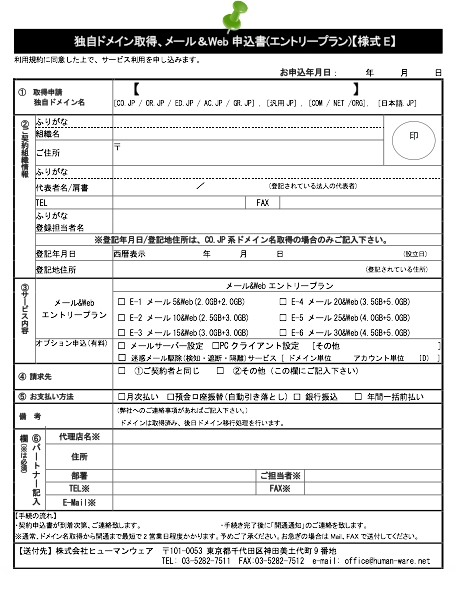 独自ドメイン取得、メール＆Web 申込書(エントリープラン)【様式 E】
利用規約に同意した上で、サービス利用を申し込みます。
お申込年月日： 年 月 日
① 取得申請
独自ドメイン名
【 】
[CO.JP / OR.JP / ED.JP / AC.JP / GR.JP] , [汎用 JP] , [COM / NET /ORG], [日本語.JP]
②ご契約組織情報
ふりがな
組織名
印
ご住所 〒
ふりがな
代表者名/肩書 ／ (登記されている法人の代表者)
TEL FAX
ふりがな
登録担当者名
※登記年月日/登記地住所は、CO.JP 系ドメイン名取得の場合のみご記入下さい。
登記年月日 西暦表示 年 月 日 (設立日)
登記地住所 (登記されている住所)
③サービス内容
メール&Web
エントリープラン
メール&Web エントリープラン
□ E-1 メール 5&Web(2.0GB+2.0GB) □ E-4 メール 20&Web(3.5GB+5.0GB)
□ E-2 メール 10&Web(2.5GB+3.0GB) □ E-5 メール 25&Web(4.0GB+5.0GB)
□ E-3 メール 15&Web(3.0GB+3.0GB) □ E-6 メール 30&Web(4.5GB+5.0GB)
オプション申込(有料)
□ メールサーバー設定 □PC クライアント設定 [その他 ]
□ 迷惑メール駆除(検知・遮断・隔離)サービス [ ドメイン単位 アカウント単位 (D) ]
④ 請求先 □ ①ご契約者と同じ □ ②その他（この欄にご記入下さい）
⑤ お支払い方法 □月次払い □預金口座振替(自動引き落とし) □ 銀行振込 □ 年間一括前払い
備 考
(弊社へのご連絡事項があればご記入下さい。)
ドメインは取得済み、後日ドメイン移行処理を行います。
⑥パートナー記入欄(※は必須)
代理店名※
住所
部署 ご担当者※
TEL※ FAX※
E-Mail※
【手続の流れ】
・契約申込書が到着次第、ご連絡致します。 ・手続き完了後に「開通通知」のご連絡を致します。
※通常、ドメイン名取得から開通まで最短で 2 営業日程度かかります。予めご了承ください。お急ぎの場合は Mail, FAX で送付してください。
【送付先】株式会社ヒューマンウェア 〒101-0053 東京都千代田区神田美土代町 9 番地
TEL: 03-5282-7511 FAX:03-5282-7512 e-mail: office@human-ware.net